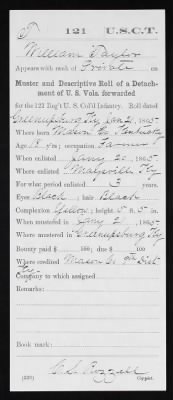 T 121 U.S.C.T.
William Taylor
Appears with rank of Private on
Muster and Descriptive Roll of a Detach-
ment of U. S. Vols. forwarded
for the 121 Reg't U. S. Col'd Infantry. Roll dated
Greenupsburg Ky Jan 21, 1865.
Where born Mason Co. Kentucky
Age 18 y'rs; occupation Farmer
When enlisted Jany 20, 1865.
Where enlisted Maysville Ky
For what period enlisted 3 years.
Eyes Black; hair Black
Complexion Yellow; height 5 ft. 5 in.
When mustered in Jany 21, 1865
Where mustered in Greenupsburg Ky
Bounty paid $ 100; due $ 100
Where credited Mason Co 9th Dist
Ky
Company to which assigned
Remarks:
Book mark:
(339)
Copyist.